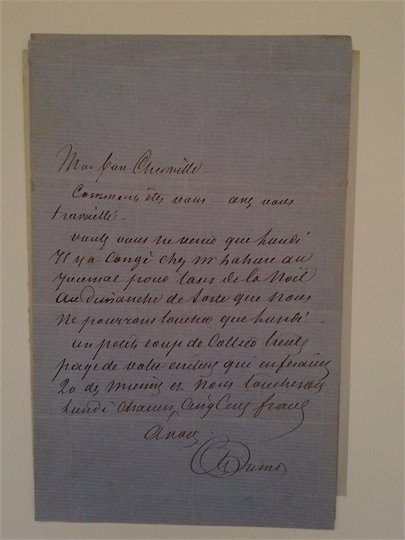 Mon bon Cherville
Comment êtes vous avez vous
travaillé –
voulez vous ne venir que lundi
Il y a congé chez Mr Lahure au
Journal pour jour de la Noël
du dimanche de sorte que nous
ne pourrons toucher que lundi –
un petit coup de Collier
page de votre écriture qui en feraient
20 des miennes et nous toucherons
lundi chacun Cinq Cents francs
A vous
ADumas